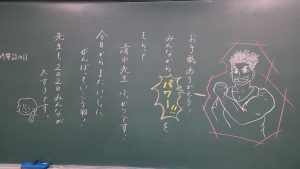 お手紙ありがとう!
みんなから
パワー!!を
もらって
清水先生ふっかつです!
今日からまたいっしょに
がんばっていこうね
先生も2の2のみんなが
大すきです。